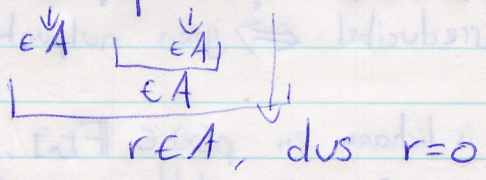 ∈A ∈A
∈A
r∈A, dus r=0